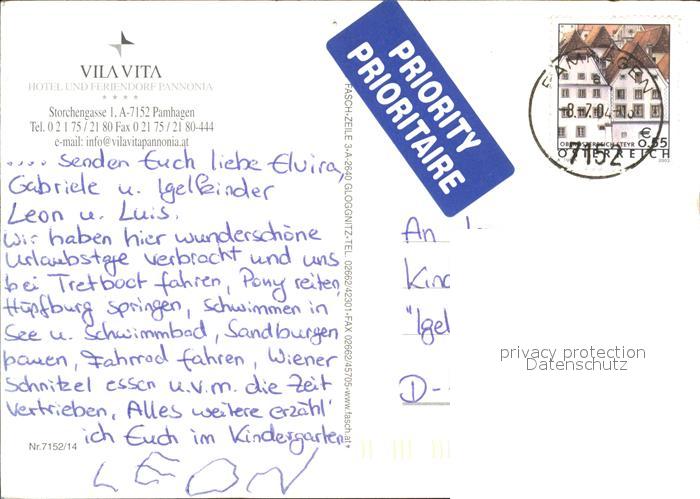 VILA VITA
HOTEL UND FERIENDORF PANNONIA
Storchengasse 1, A-7152 Pamhagen
Tel. 0 21 75 / 21 80 Fax 0 21 75 / 21 80-444
e-mail: info@vilavitapannonia.at
.... senden Euch liebe Elvira,
Gabriele u. Igelkinder
Leon u. Luis.
Wir haben hier wunderschöne
Urlaubstage verbracht und uns
bei Tretboot fahren, Pony reiten
Hüpfburg springen, schwimmen in
See u. Schwimmbad, Sandburgen
bauen, Fahrrad fahren, Wiener
Schnitzel essen u.v.m. die Zeit
vertrieben, Alles weitere erzähl'
ich Euch im Kindergarten
LEON
Nr. 7152/14
FASCH-ZEILE 3-A-2640 GLOGGNITZ-TEL. 02662/42301-FAX 02662/45705-www.fasch.at
PRIORITY
PRIORITAIRE
PAMHAGEN
a
-8.-7.04-
7152
OBERÖSTERREICH STEYR
€ 0,55
ÖSTERREICH
2003
An
Kin
"Igel
D-
privacy protection
Datenschutz